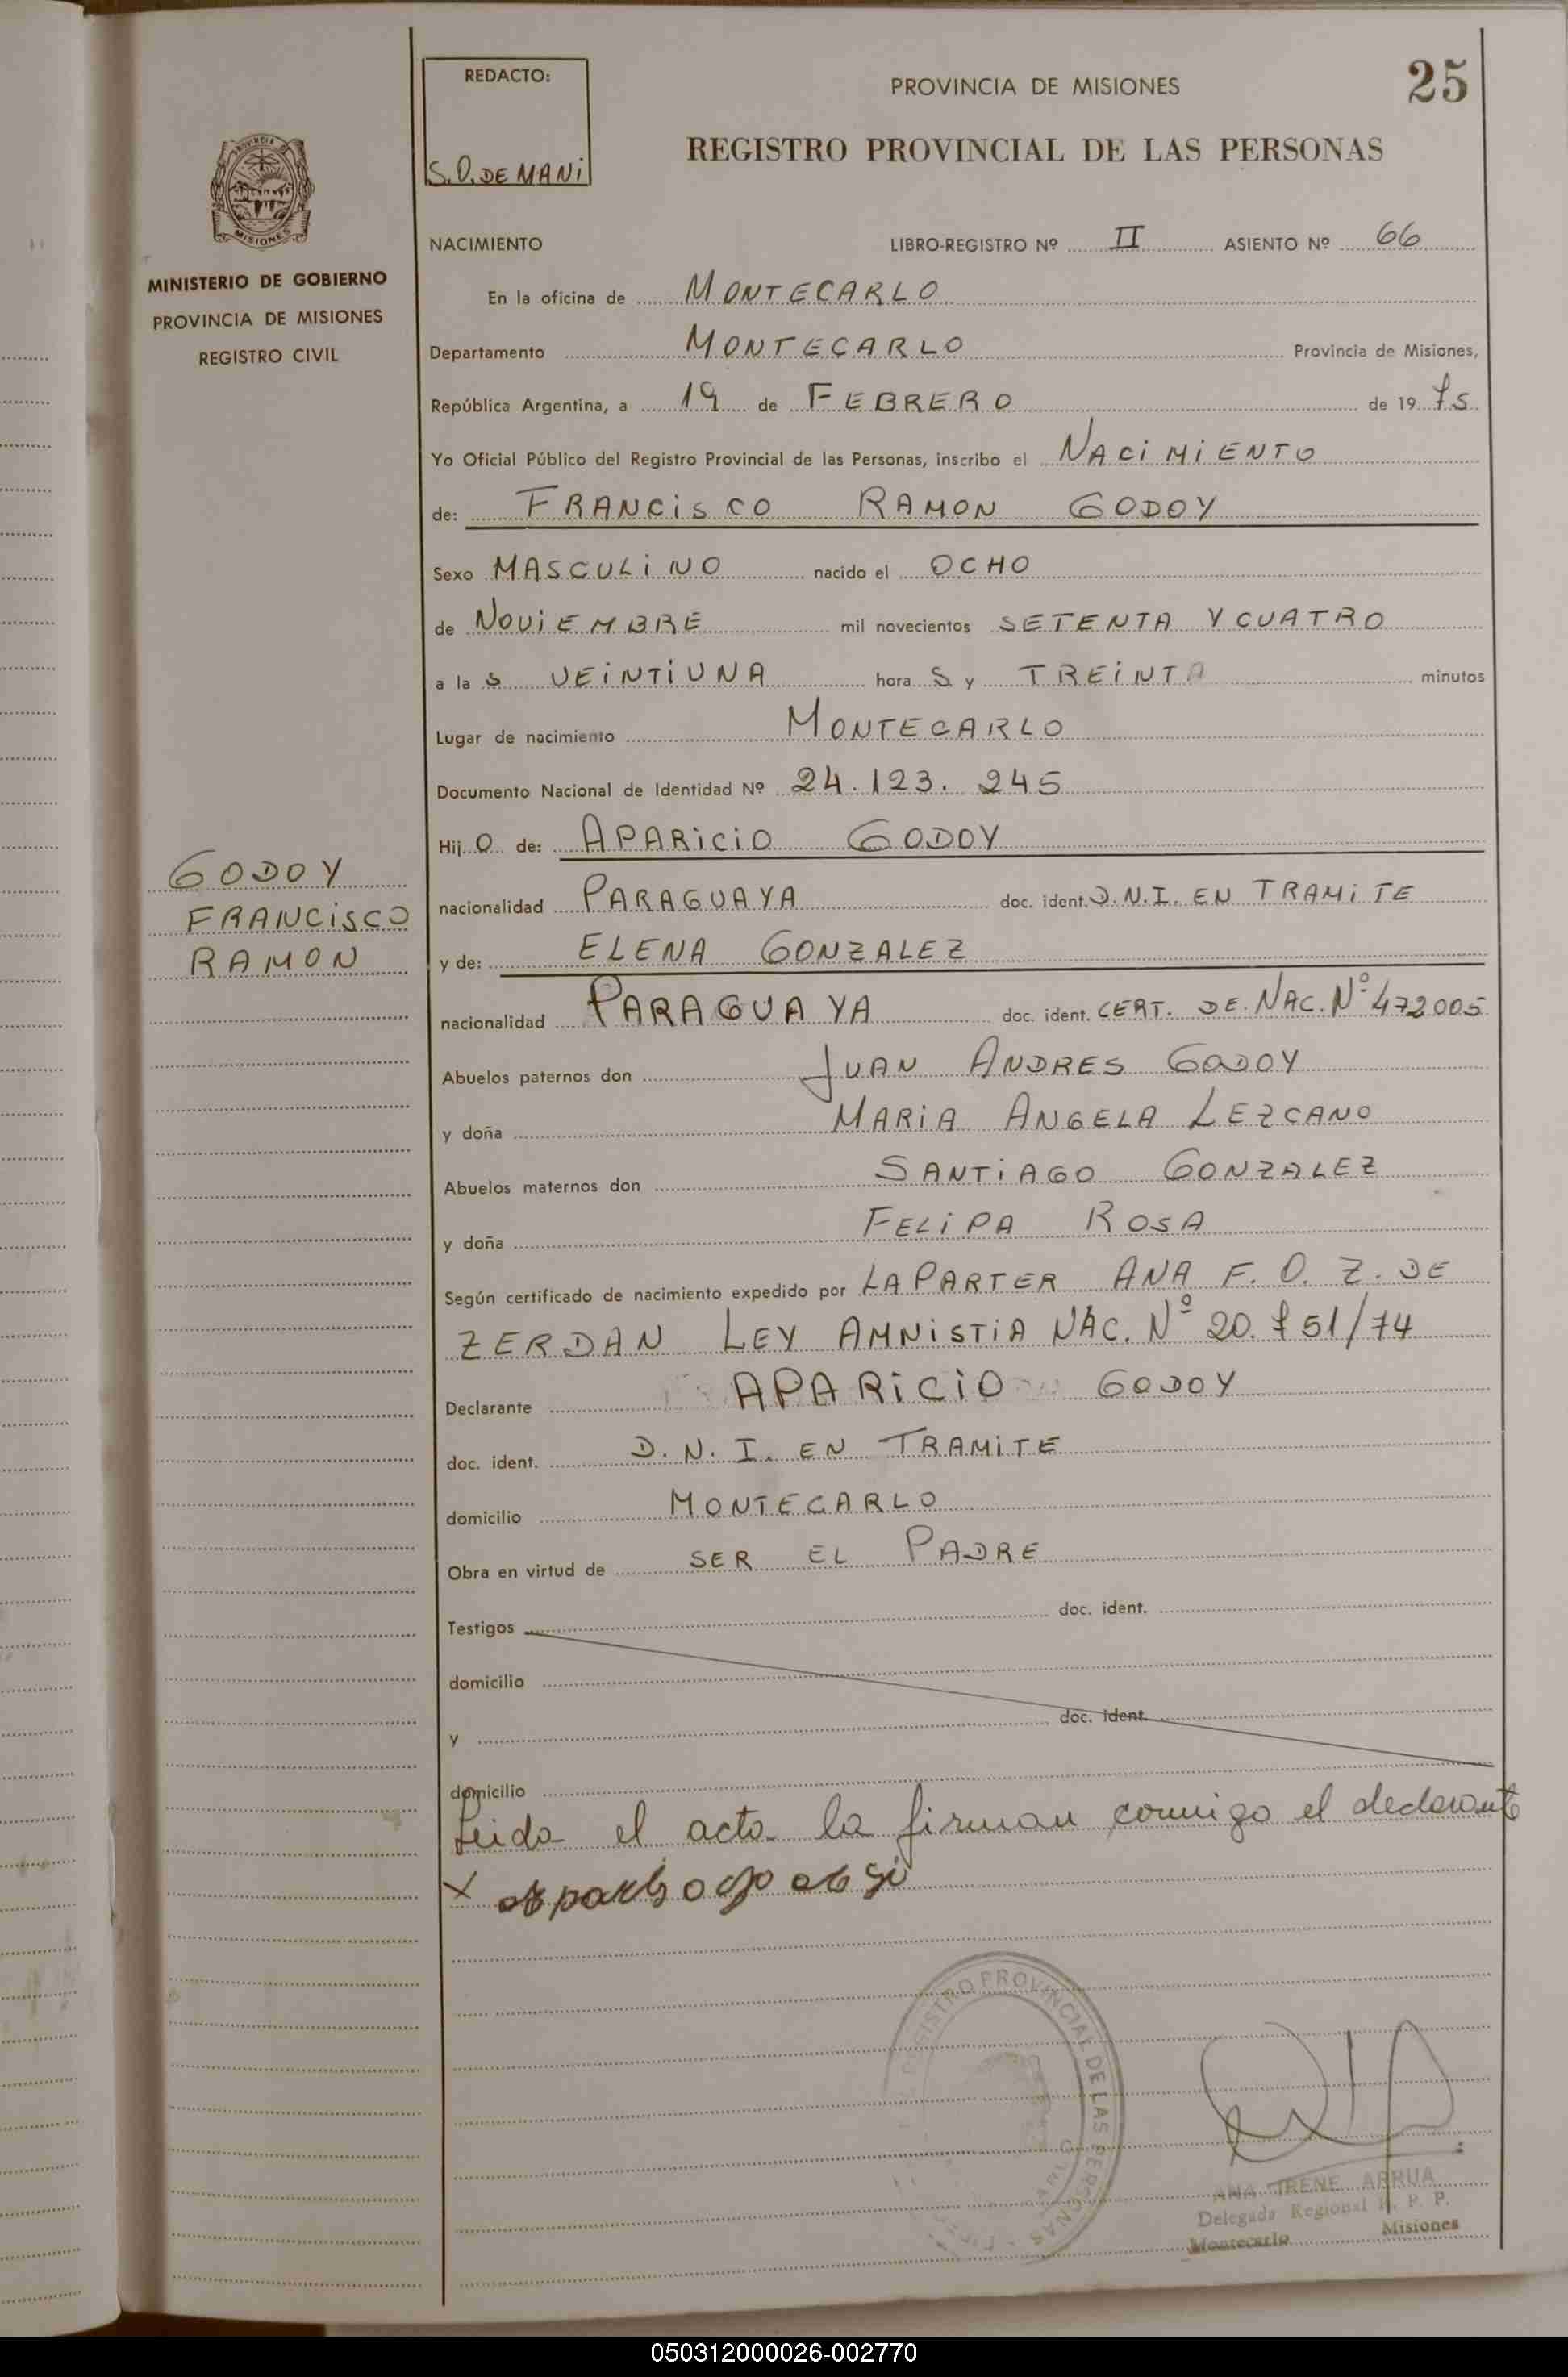 REDACTO:
S.O. DE MANI
PROVINCIA DE MISIONES
25
REGISTRO PROVINCIAL DE LAS PERSONAS
PROVINCIA DE
MISIONES
MINISTERIO DE GOBIERNO
PROVINCIA DE MISIONES
REGISTRO CIVIL
NACIMIENTO LIBRO-REGISTRO Nº II ASIENTO Nº 66
En la oficina de MONTECARLO
Departamento MONTECARLO Provincia de Misiones,
República Argentina, a 19 de FEBRERO de 1975
Yo Oficial Público del Registro Provincial de las Personas, inscribo el NACIMIENTO
de: FRANCISCO RAMON GODOY
Sexo MASCULINO nacido el OCHO
de NOVIEMBRE mil novecientos SETENTA Y CUATRO
a las VEINTIUNA horas y TREINTA minutos
Lugar de nacimiento MONTECARLO
Documento Nacional de Identidad Nº 24.123.245
Hijo de: APARICIO GODOY
GODOY
FRANCISCO
RAMON
nacionalidad PARAGUAYA doc. ident. D.N.I. EN TRAMITE
y de: ELENA GONZALEZ
nacionalidad PARAGUAYA doc. ident. CERT. DE NAC. Nº 472005
Abuelos paternos don JUAN ANDRES GODOY
y doña MARIA ANGELA LEZCANO
Abuelos maternos don SANTIAGO GONZALEZ
y doña FELIPA ROSA
Según certificado de nacimiento expedido por LA PARTER ANA F. O. Z. DE
ZERDAN LEY AMNISTIA NAC. Nº 20.751/74
Declarante APARICIO GODOY
doc. ident. D.N.I. EN TRAMITE
domicilio MONTECARLO
Obra en virtud de SER EL PADRE
Testigos doc. ident.
domicilio
y doc. ident.
domicilio
Leida el acta la firman conmigo el declarante
X
REGISTRO PROVINCIAL DE LAS PERSONAS
ANA IRENE ARRUA
Delegada Regional R. P. P.
Montecarlo Misiones
050312000026-002770